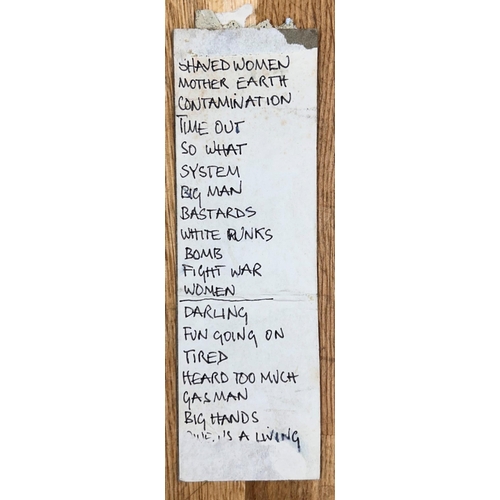 SHAVED WOMEN
MOTHER EARTH
CONTAMINATION
TIME OUT
SO WHAT
SYSTEM
BIG MAN
BASTARDS
WHITE PUNKS
BOMB
FIGHT WAR
WOMEN
DARLING
FUN GOING ON
TIRED
HEARD TOO MUCH
GASMAN
BIG HANDS
A LIVING